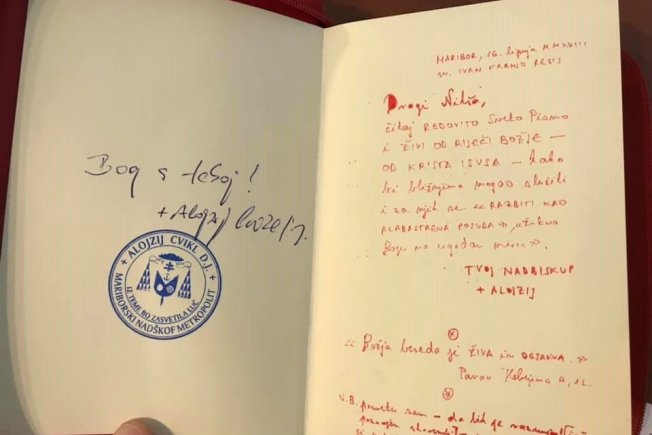 Bog s teboj!
+ Alojzij
+ ALOJZIJ CVIKL D.J. +
IZ TEME BO ZASVETILA LUČ
MARIBORSKI NADŠKOF METROPOLIT
MARIBOR, 16. lipnja MMXVIII
IVAN FRANJO REGIS
Dragi Nikša,
čitaj REDOVITO Sveto Pismo
i ŽIVI OD RIJEČI BOŽJE —
OD KRISTA ISUSA — kako
bi bližnjima mogao služiti
i za njih se «RAZBITI KAO
ALABASTRENA POSUDA»
Bogu na ugodan miris».
TVOJ NADBISKUP
+ ALOJZIJ
«Božja beseda je ŽIVA in DEJAVNA.»
Pavao Hebrejima 4, 12
N.B. da bih je